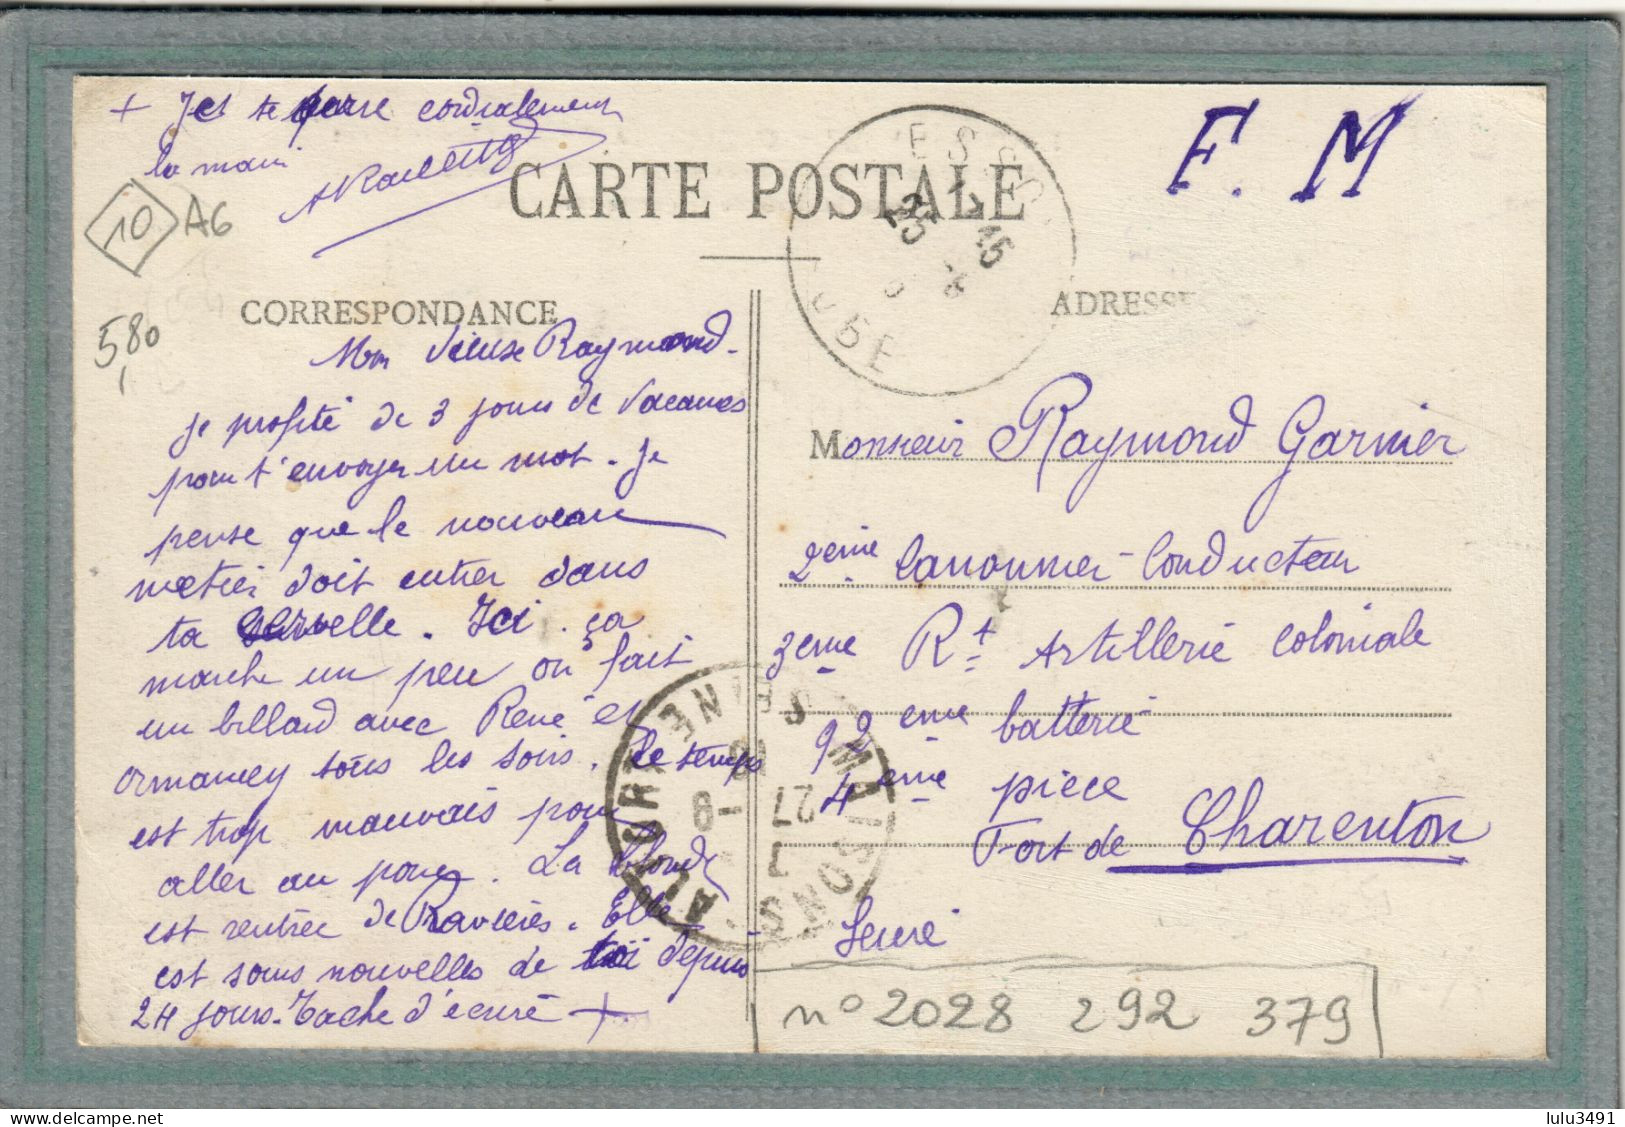 + Je te serre cordialement
la main
CARTE POSTALE
F. M
10
A6
580
CORRESPONDANCE
ADRESSE
ESSO
AUBE
25 1 16
Mon Vieux Raymond.
Je profite de 3 jours de vacances
pour t'envoyer un mot. Je
pense que le nouveau
metier doit entrer dans
ta cervelle. Ici ça
marche un peu on fait
un billard avec René et
Ormancey tous les soirs. Le temps
est trop mauvais pour
aller au porc. La blonde
est rentrée de Ravières. Elle
est sans nouvelles de toi depuis
24 jours. Tache d'écrire +
Monsieur Raymond Garnier
2eme Canonnier-Conducteur
3eme Rt Artillerie Coloniale
92eme batterie
4eme pièce
Fort de Charenton
Seine
MAISONS-ALFORT
SEINE
27 -1
no 2028 292 379
lulu3491